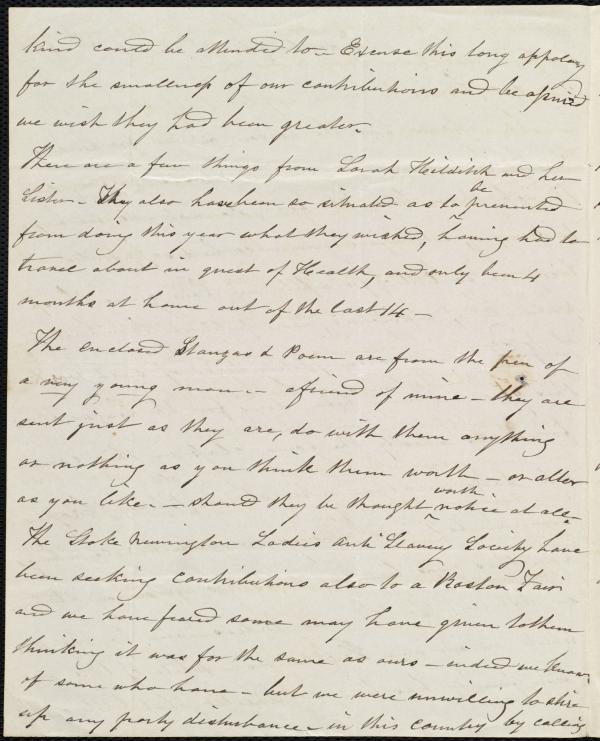 kind could be attended to - Excuse this long appology
for the smallness of our contributions and be assured
we wish they had been greater.
There are a few things from Sarah Hilditch and her
Sister - They also have been so situated as to be prevented
from doing this year what they wished, having had to
travel about in quest of Health, and only been 4
months at home out of the last 14 -
The enclosed Stanzas & Poem are from the pen of
a very young man - a friend of mine - they are
sent just as they are, do with them anything
or nothing as you think them worth - or alter
as you like. - should they be thought worth notice at all.
The Stoke Newington Ladies Anti Slavery Society have
been seeking contributions also to a Boston Fair
and we have feared some may have given to them
thinking it was for the same as ours - indeed we know
of some who have - but we were unwilling to stir
up any party disturbance - in this country by calling